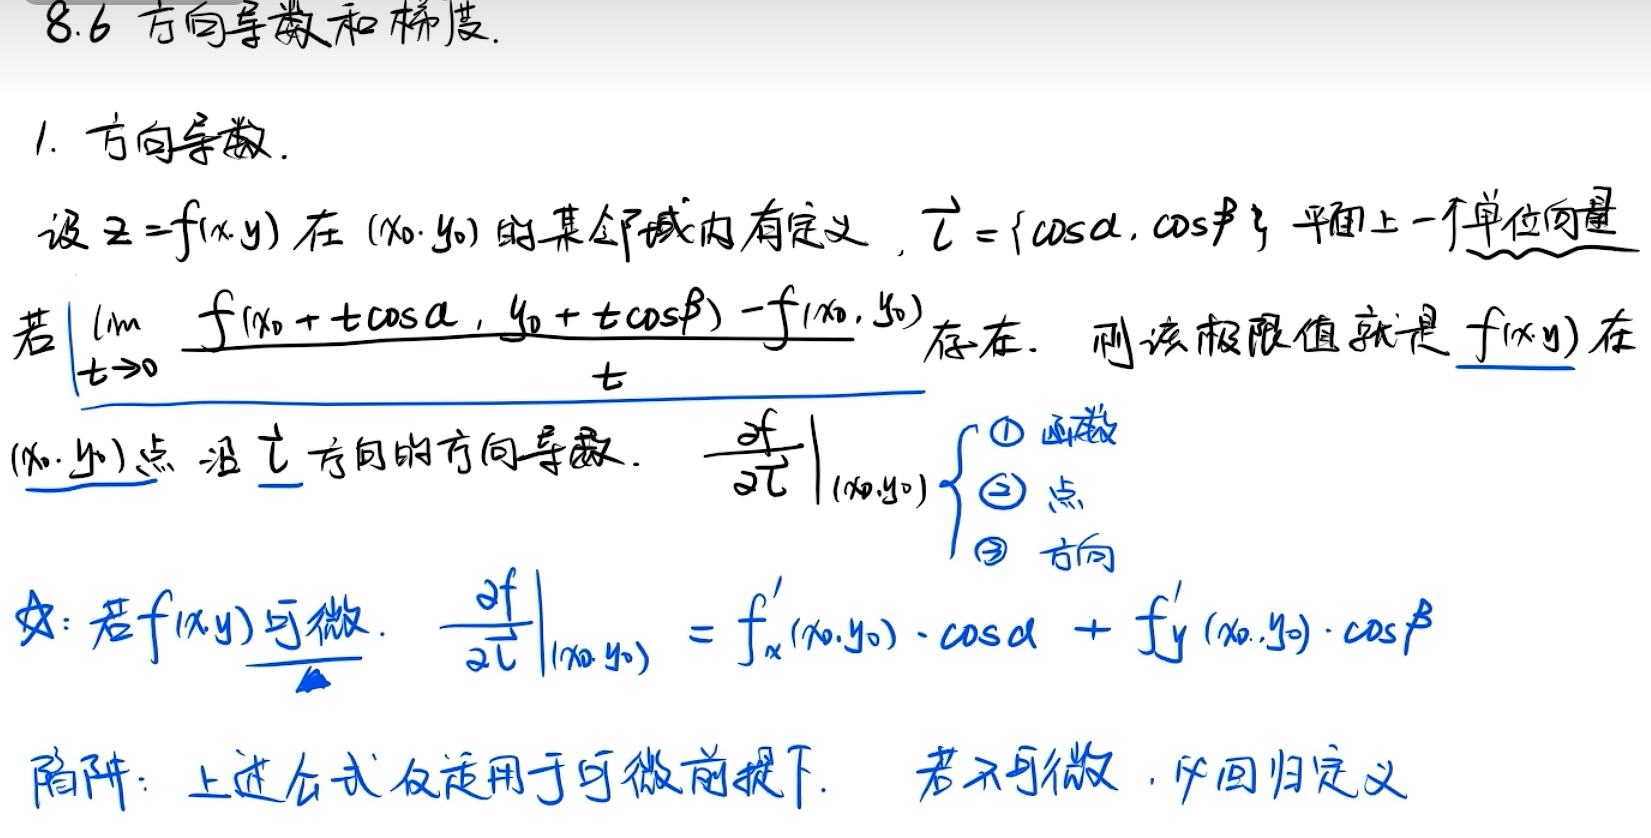 8.6 方向导数和梯度.
1. 方向导数.
设 z=f(x.y) 在 (x₀.y₀) 的某邻域内有定义, l⃗={cosα, cosβ} 平面上一个单位向量
若 lim_{t→0} \frac{f(x₀+tcosα, y₀+tcosβ)-f(x₀,y₀)}{t} 存在. 则该极限值就是 f(x.y) 在
(x₀.y₀)点 沿 l⃗ 方向的方向导数. \frac{∂f}{∂l⃗}|_{(x₀,y₀)} { ① 函数
② 点
③ 方向
☆: 若f(x.y)可微. \frac{∂f}{∂l⃗}|_{(x₀.y₀)} = f'ₓ(x₀.y₀)·cosα + f'_y(x₀.y₀)·cosβ
陷阱: 上述公式仅适用于可微前提下. 若不可微, 必回归定义